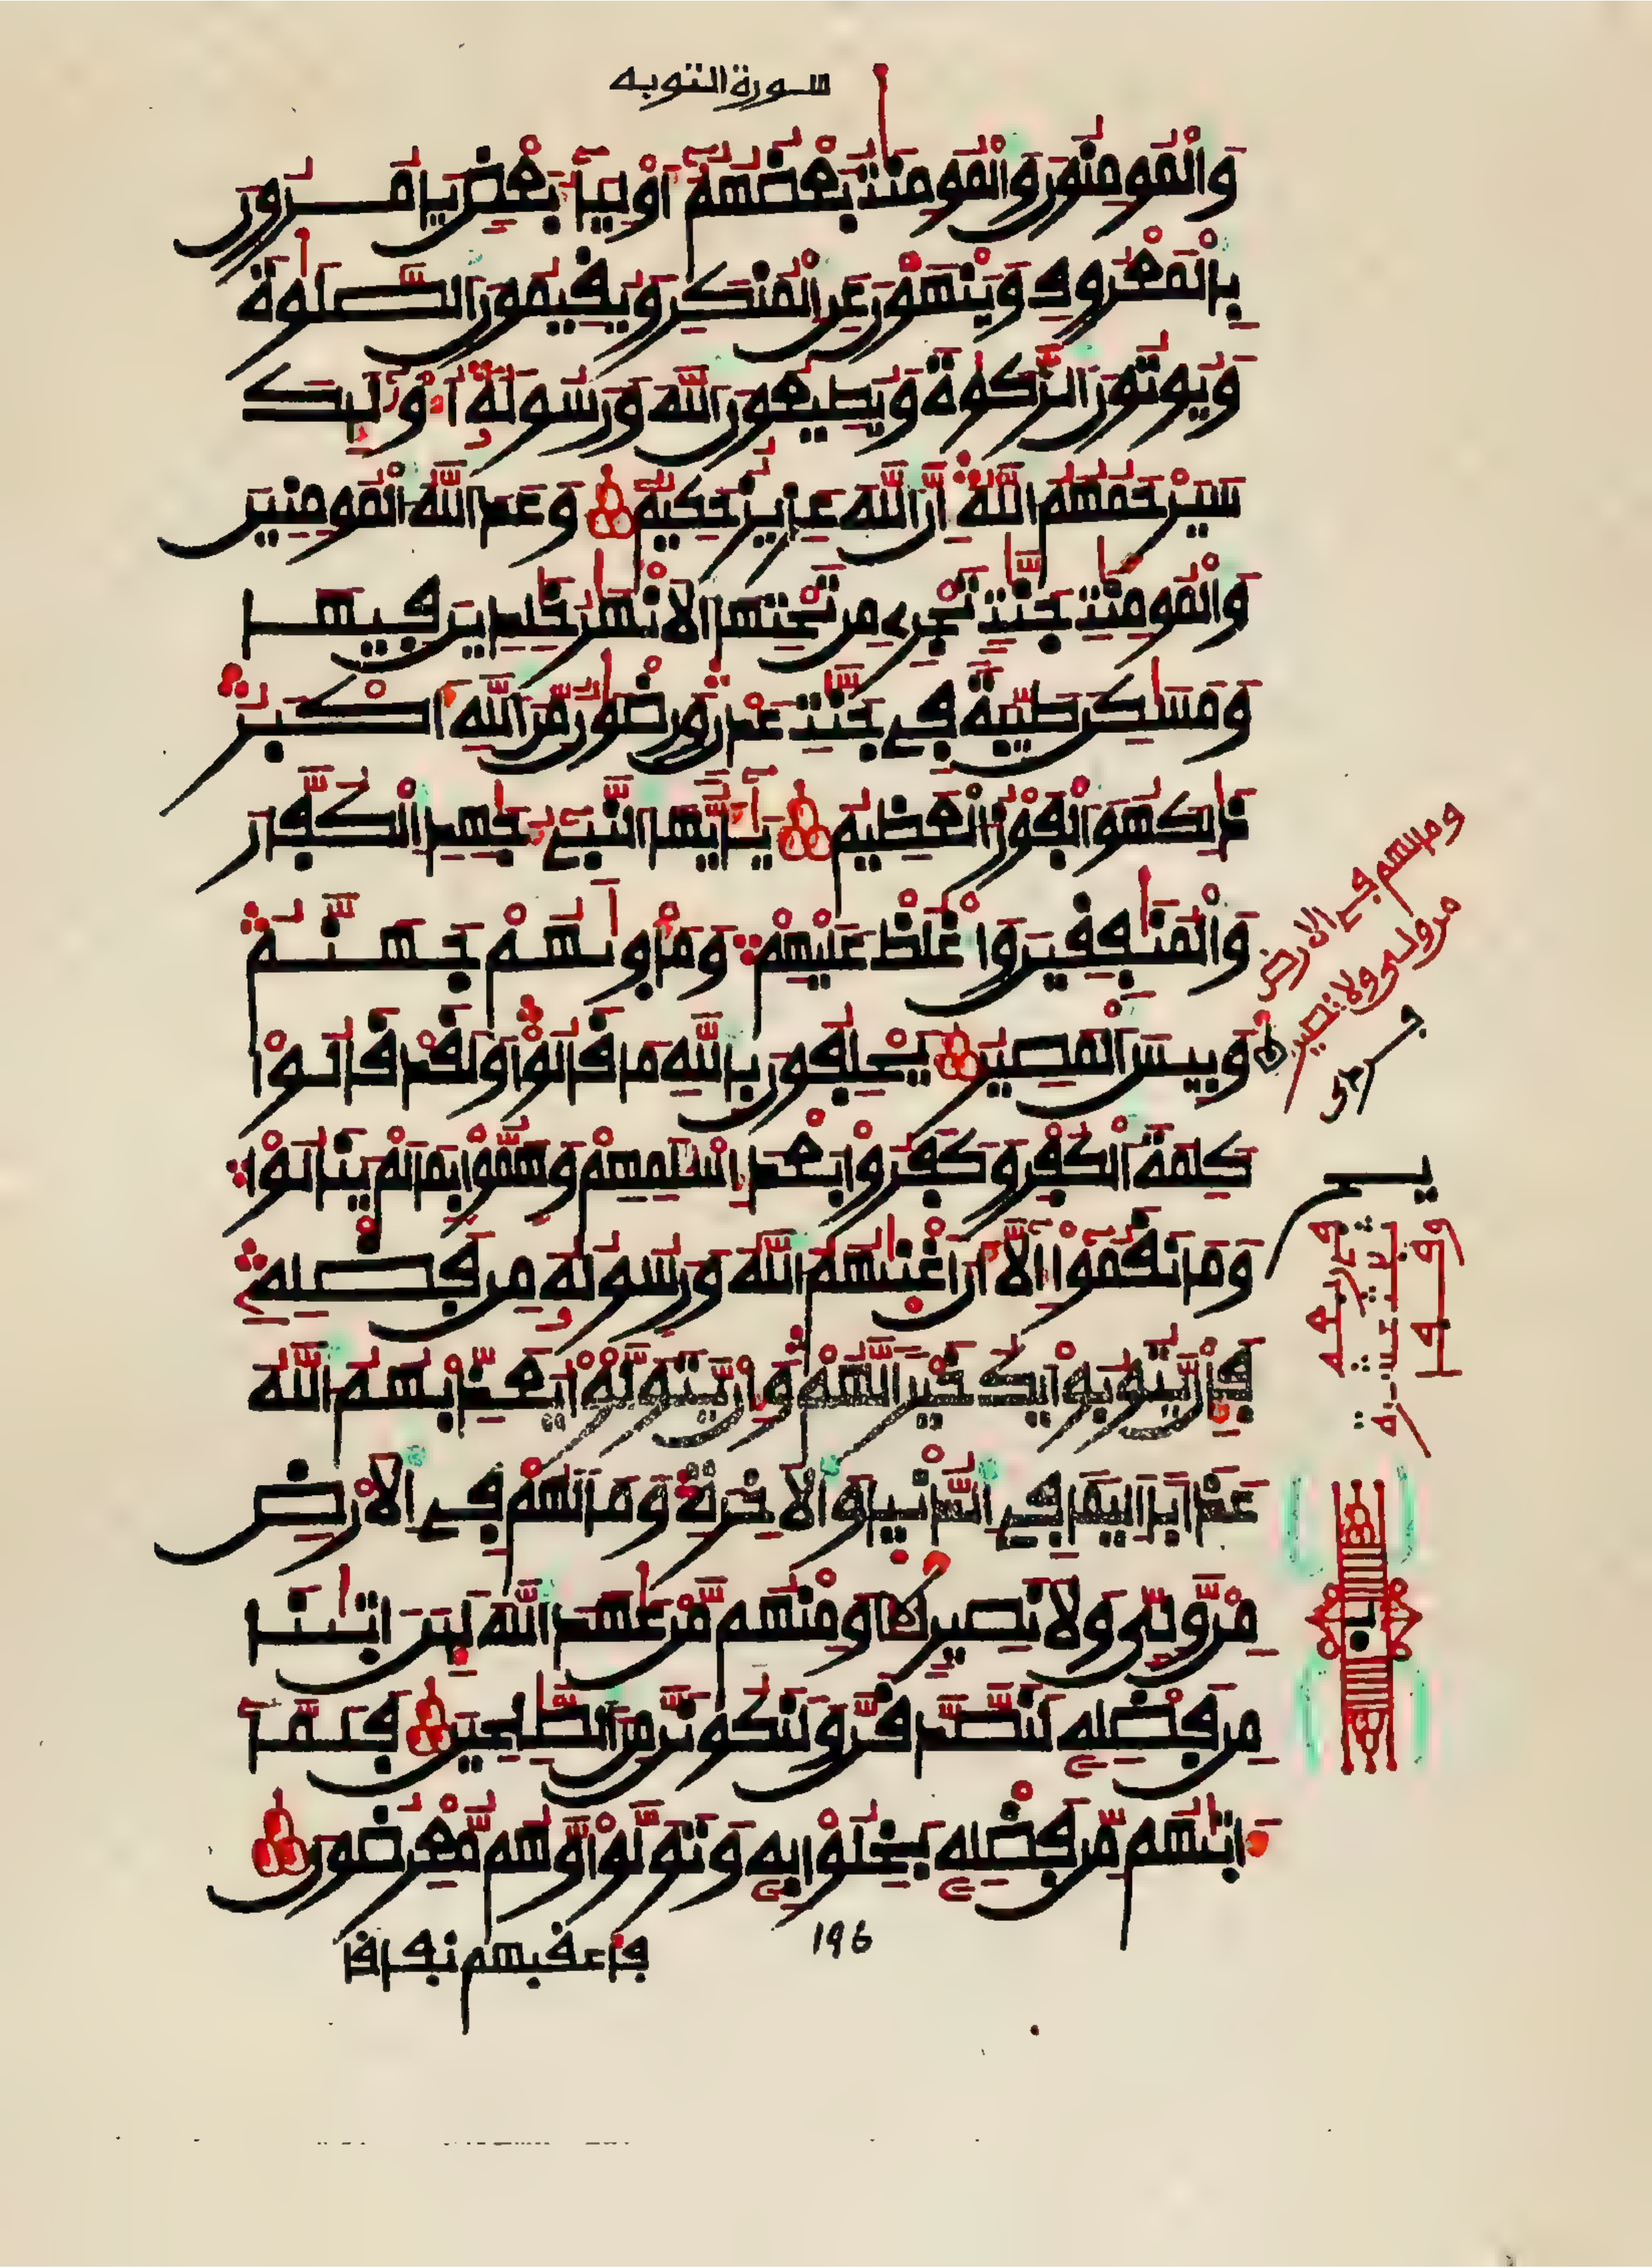 سورة التوبه
وَالْمُومِنُونَ وَالْمُومِنَٰتُ بَعْضُهُمُۥٓ أَوْلِيَآءُ بَعْضٍ يَامُرُونَ
بِالْمَعْرُوفِ وَيَنْهَوْنَ عَنِ الْمُنكَرِ وَيُقِيمُونَ الصَّلَوٰةَ
وَيُوتُونَ الزَّكَوٰةَ وَيُطِيعُونَ اللَّهَ وَرَسُولَهُۥٓ أُوْلَٰٓئِكَ
سَيَرْحَمُهُمُ اللَّهُ إِنَّ اللَّهَ عَزِيزٌ حَكِيمٌ وَعَدَ اللَّهُ الْمُومِنِينَ
وَالْمُومِنَٰتِ جَنَّٰتٍ تَجْرِے مِن تَحْتِهَا الَانْهَٰرُ خَٰلِدِينَ فِيهَا
وَمَسَٰكِنَ طَيِّبَةً فِے جَنَّٰتِ عَدْنٍ وَرِضْوَٰنٌ مِّنَ اللَّهِ أَكْبَرُ
ذَٰلِكَ هُوَ الْفَوْزُ الْعَظِيمُ يَٰٓأَيُّهَا النَّبِےٓءُ جَٰهِدِ الْكُفَّارَ
وَالْمُنَٰفِقِينَ وَاغْلُظْ عَلَيْهِمْ وَمَأْوَىٰهُمْ جَهَنَّمُ
وَبِيسَ الْمَصِيرُ يَحْلِفُونَ بِاللَّهِ مَا قَالُواْ وَلَقَدْ قَالُواْ
كَلِمَةَ الْكُفْرِ وَكَفَرُواْ بَعْدَ إِسْلَٰمِهِمْ وَهَمُّواْ بِمَا لَمْ يَنَالُواْ
وَمَا نَقَمُوٓاْ إِلَّآ أَنَ اَغْنَىٰهُمُ اللَّهُ وَرَسُولُهُۥ مِن فَضْلِهِۦ
فَإِنْ يَّتُوبُواْ يَكُ خَيْرًا لَّهُمْ وَإِنْ يَّتَوَلَّوْاْ يُعَذِّبْهُمُ اللَّهُ
عَذَابًا اَلِيمًا فِے الدُّنْيَا وَالَاخِرَةِ وَمَا لَهُمْ فِے الَارْضِ
مِنْ وَّلِىٍّ وَلَا نَصِيرٍ وَمِنْهُم مَّنْ عَٰهَدَ اللَّهَ لَئِنَ اٰتَىٰنَا
مِن فَضْلِهِۦ لَنَصَّدَّقَنَّ وَلَنَكُونَنَّ مِنَ الصَّٰلِحِينَ فَلَمَّآ
ءَاتَىٰهُم مِّن فَضْلِهِۦ بَخِلُواْ بِهِۦ وَتَوَلَّواْ وَّهُم مُّعْرِضُونَ
196
فاعقبهم نفاقا
وما لهم في الارض
من ولى ولا نصير